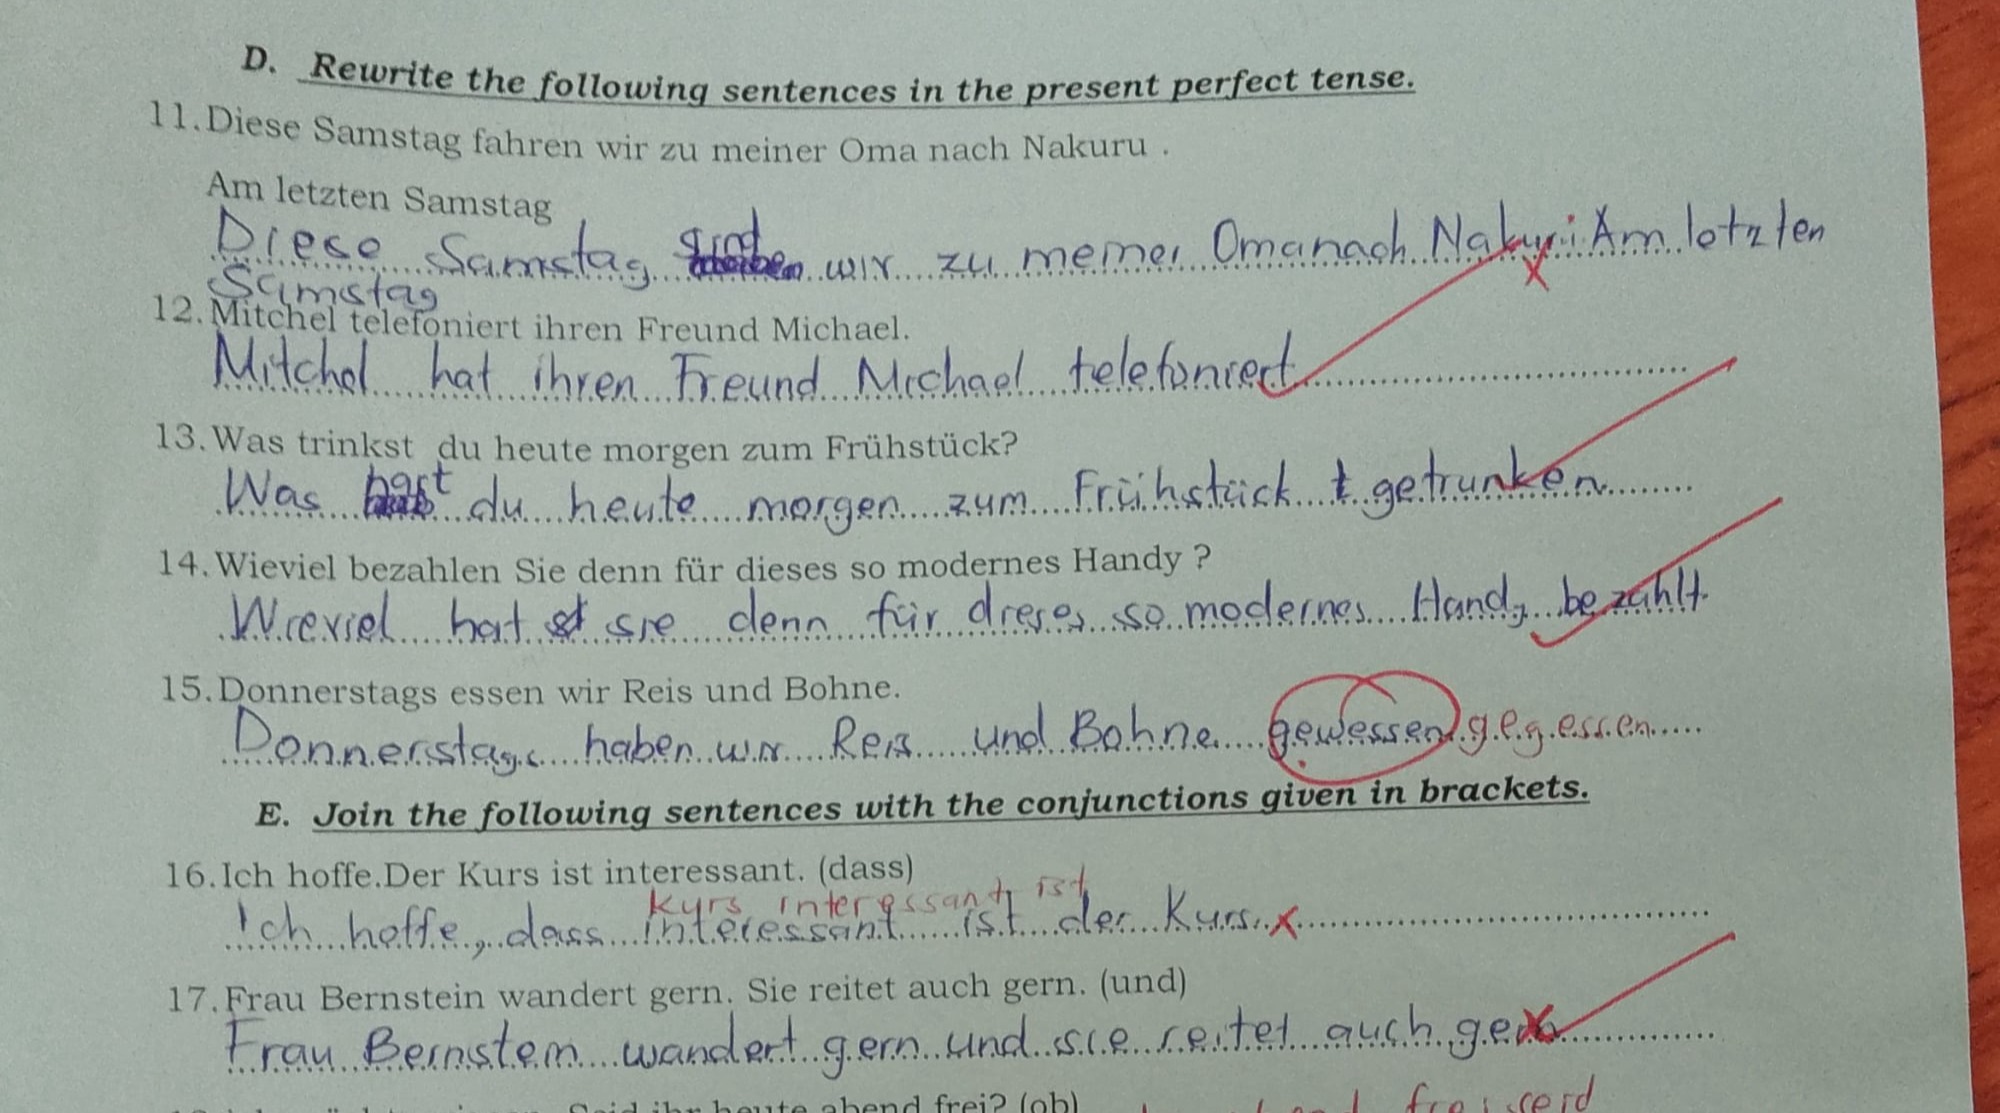 D. Rewrite the following sentences in the present perfect tense.
11. Diese Samstag fahren wir zu meiner Oma nach Nakuru .
Am letzten Samstag
Diese Samstag sind wir zu meiner Oma nach Nakuru. Am letzten
Samstag
12. Mitchel telefoniert ihren Freund Michael.
Mitchel hat ihren Freund Michael telefoniert
13. Was trinkst du heute morgen zum Frühstück?
Was hast du heute morgen zum Frühstück getrunken
14. Wieviel bezahlen Sie denn für dieses so modernes Handy ?
Wieviel hat sie denn für dieses so modernes Handy bezahlt.
15. Donnerstags essen wir Reis und Bohne.
Donnerstags haben wir Reis und Bohne gewessen gegessen
E. Join the following sentences with the conjunctions given in brackets.
16. Ich hoffe.Der Kurs ist interessant. (dass)
Kurs interessant ist
Ich hoffe, dass interessant ist der Kurs. x
17. Frau Bernstein wandert gern. Sie reitet auch gern. (und)
Frau Bernstein wandert gern und sie reitet auch gern
Seid ihr heute abend frei? (ob) frei seid